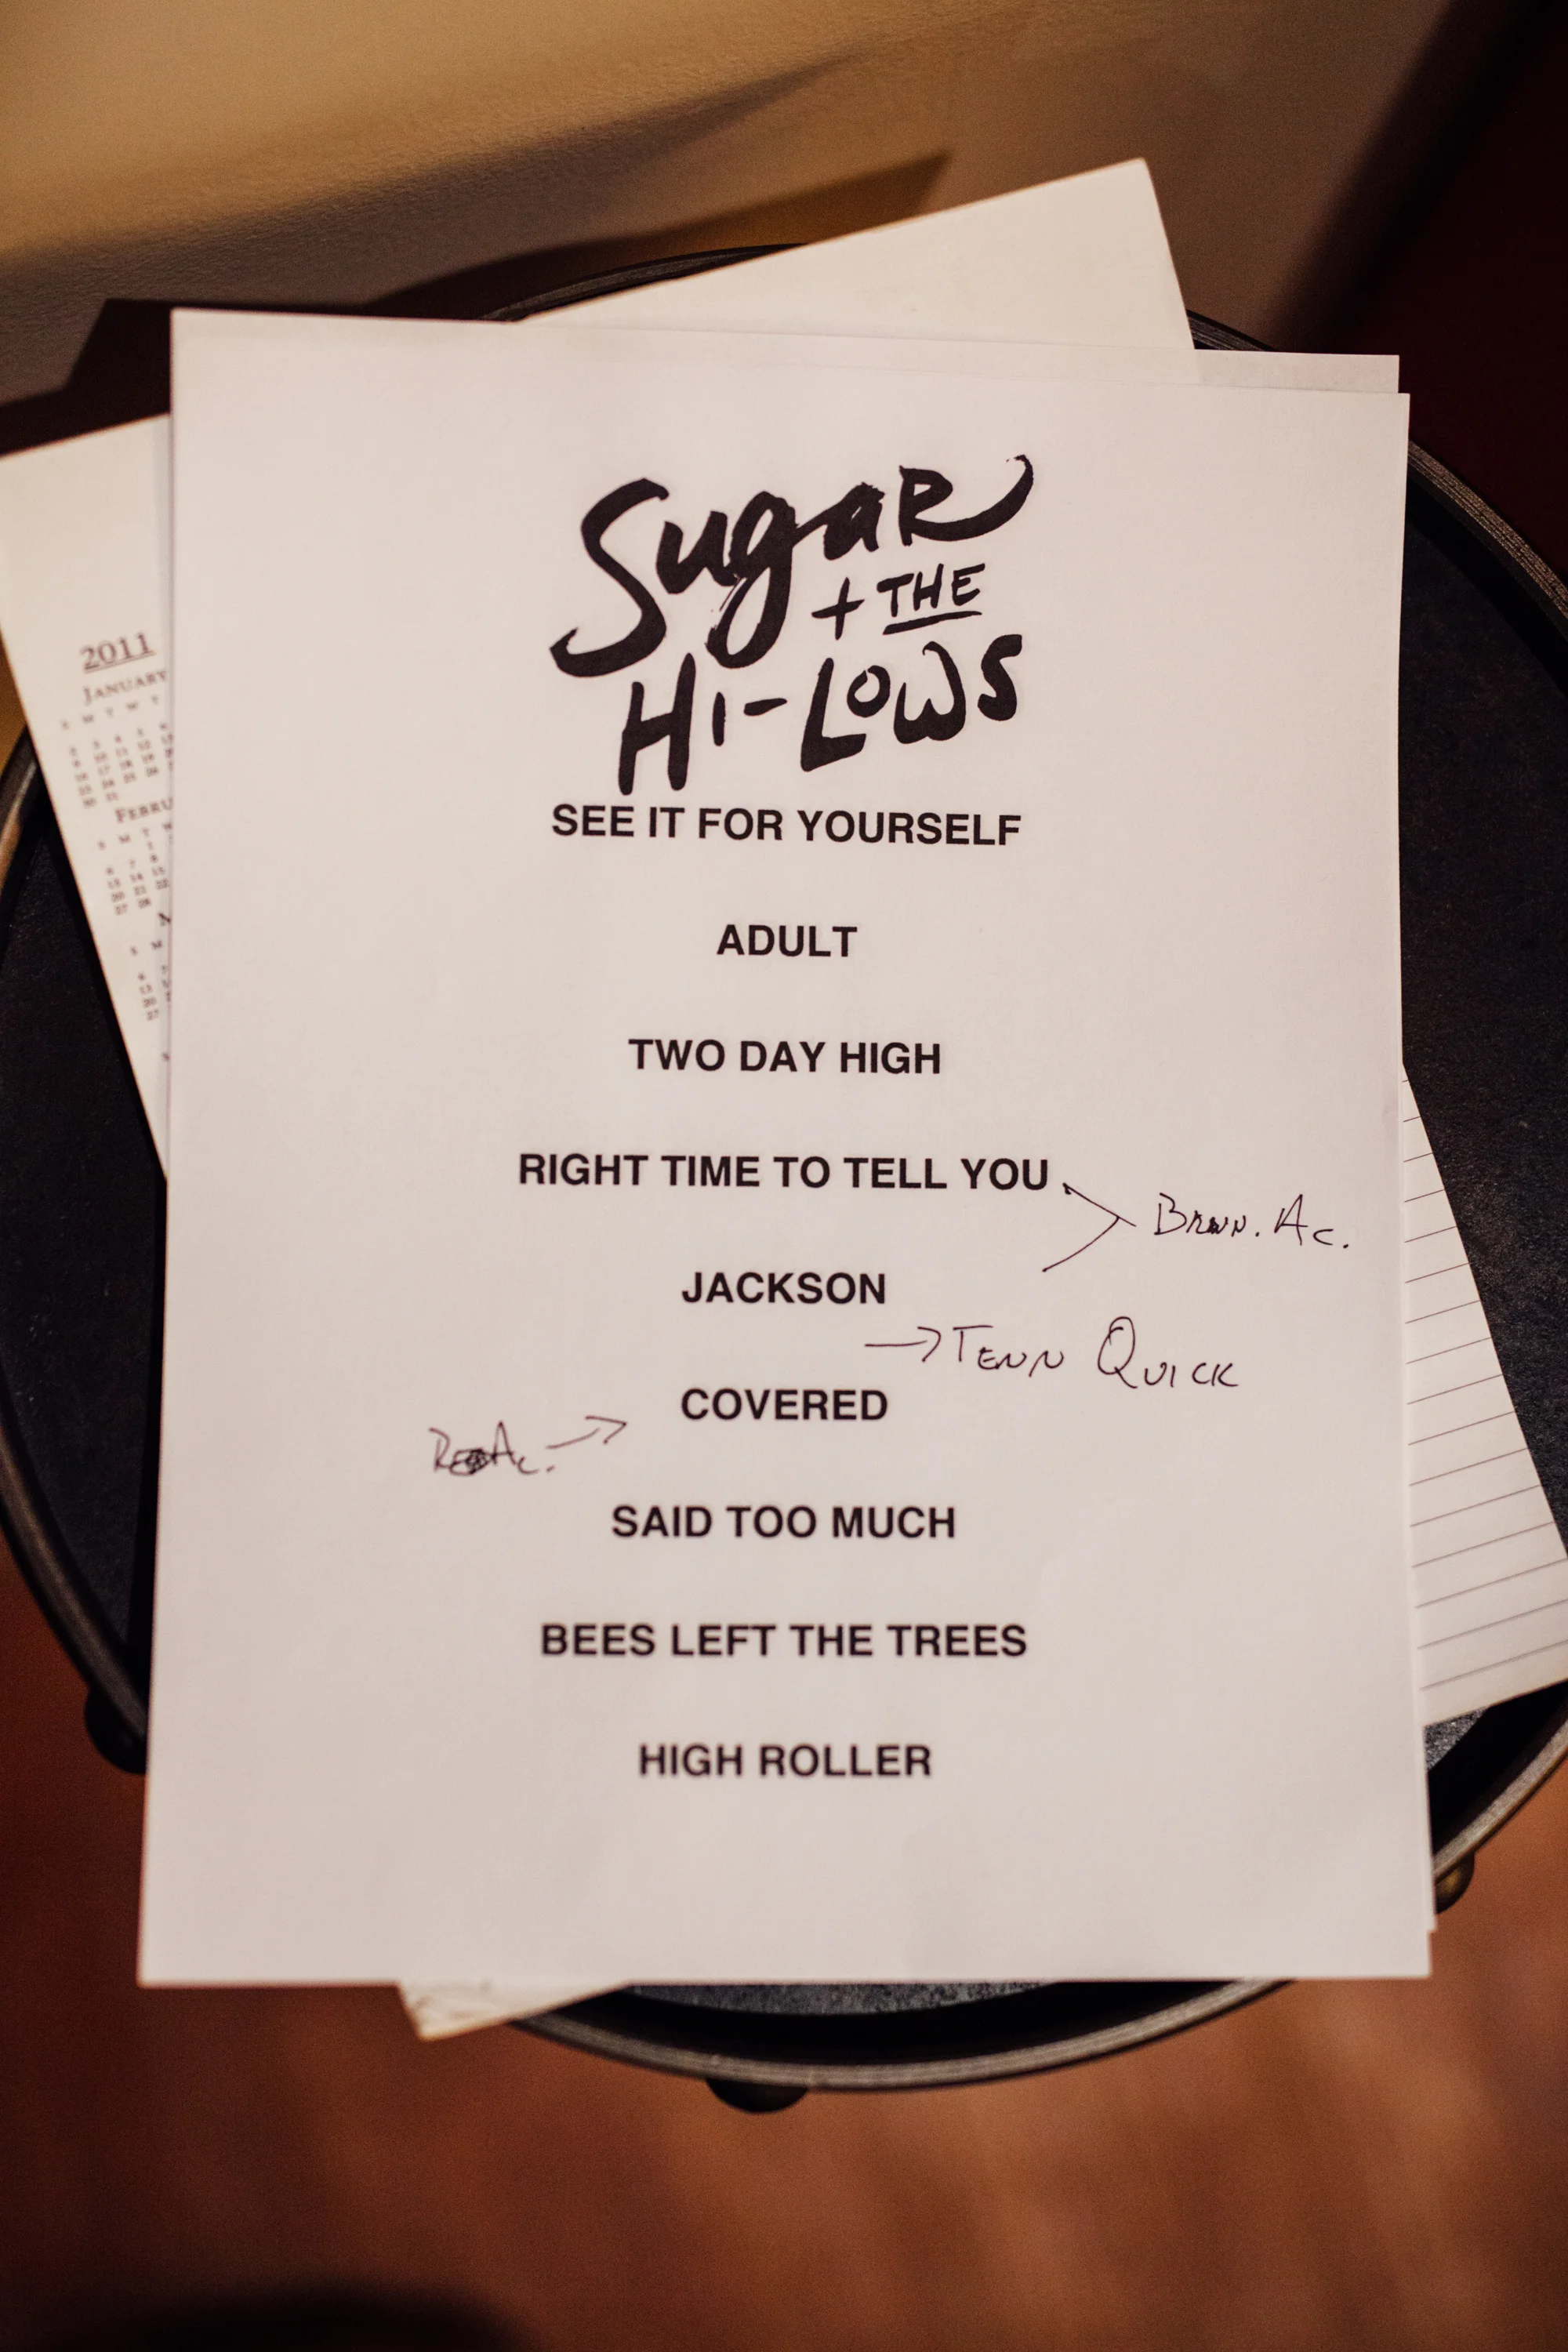 Sugar
+ THE
HI-LOWS
SEE IT FOR YOURSELF
ADULT
TWO DAY HIGH
RIGHT TIME TO TELL YOU
Ac.
JACKSON
→TENN QUICK
COVERED
→
SAID TOO MUCH
BEES LEFT THE TREES
HIGH ROLLER
2011
JANUARY
S M T W T
FEBRU
S M T